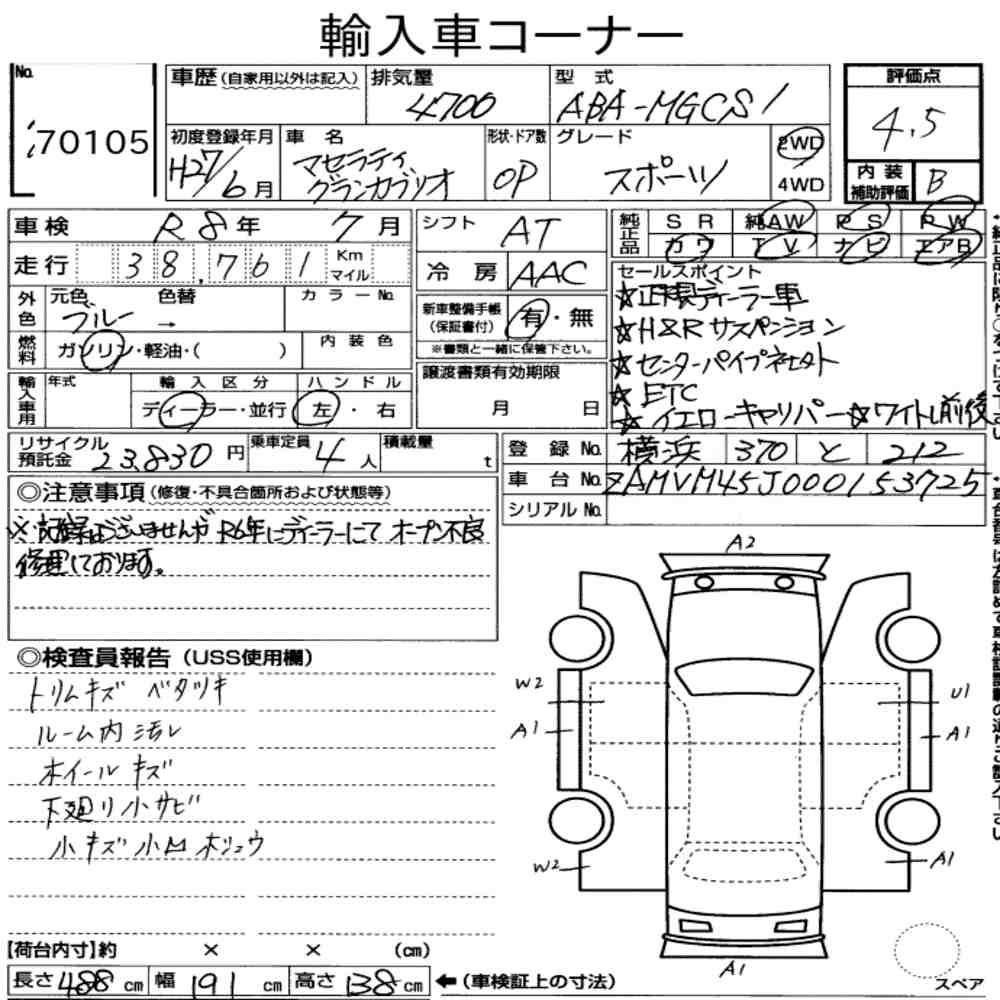 輸入車コーナー
No.
i70105
車歴 (自家用以外は記入)
排気量
4700
型式
ABA-MGCS1
評価点
4.5
初度登録年月
H27/6月
車名
マセラティ
グランカブリオ
形状・ドア数
OP
グレード
スポーツ
2WD
4WD
内装
補助評価
B
車検 R8年 7月
シフト AT
純正品
SR 純AW PS PW
カワ TV ナビ エアB
走行 38,761 Km マイル
冷房 AAC
セールスポイント
☆正規ディーラー車
☆H&Rサスペンション
☆センターパイプ
☆ETC
☆イエローキャリパー ☆
前後
外色
元色 ブルー 色替 →
カラーNo.
新車整備手帳
(保証書付)
有・無
※書類と一緒に保管下さい。
燃料
ガソリン・軽油・( )
内装色
輸入車用
年式
輸入区分
ハンドル
ディーラー・並行
左・右
譲渡書類有効期限
月 日
リサイクル
預託金
23,830円
乗車定員 4人
積載量 t
登録No. 横浜 370 と 212
車台No. ZAMVM45J000153725
シリアルNo.
◎注意事項 (修復・不具合箇所および状態等)
※記録はございませんが R6年にディーラーにて オープン不良
修理しております。
◎検査員報告 (USS使用欄)
トリムキズ ベタツキ
ルーム内汚レ
ホイールキズ
下廻り小サビ
小キズ小凹
A2
W2
U1
A1
A1
W2
A1
A1
スペア
【荷台内寸】約 × × (cm)
長さ 488 cm 幅 191 cm 高さ 138 cm ←(車検証上の寸法)